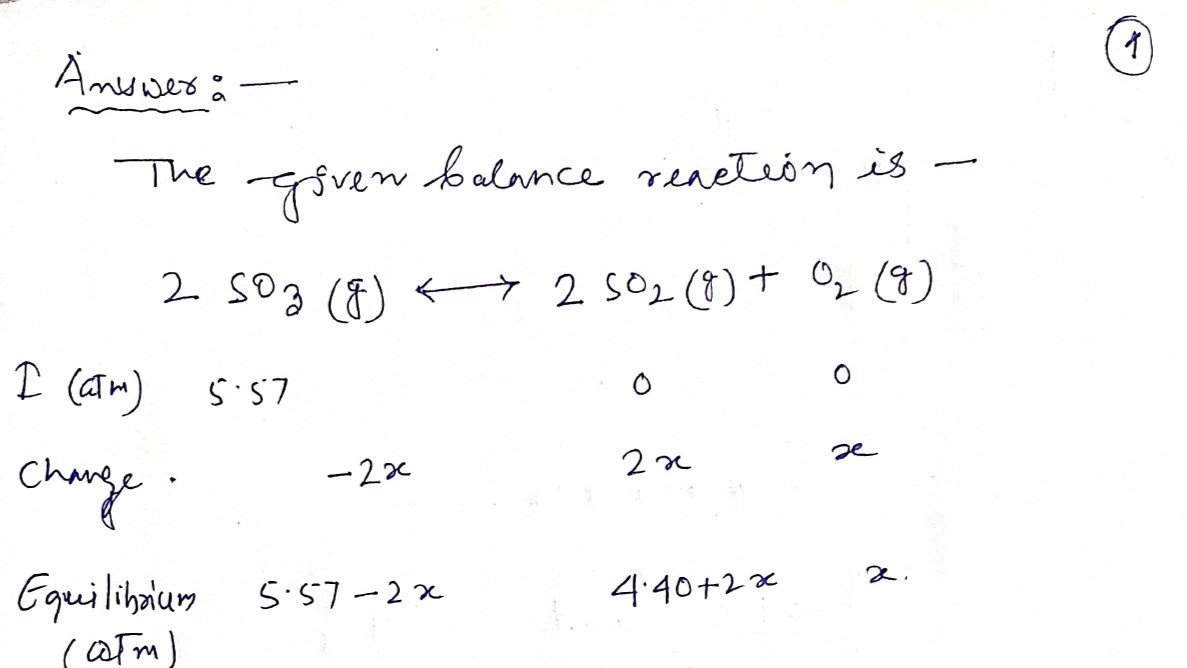 1
Answer : —
The given balance reaction is —
2 SO3 (g) ⟷ 2 SO2 (g) + O2 (g)
I (atm) 5.57 0 0
Change . -2x 2x x
Equilibrium 5.57-2x 4.40+2x x.
(atm)